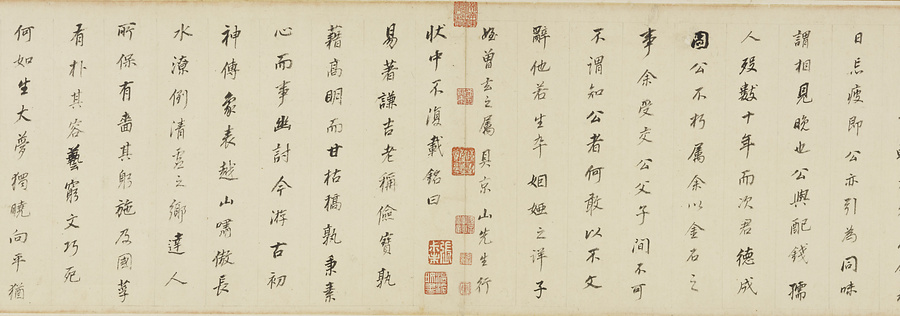 日忘疲即公亦引為同味
謂相見晚也公與配錢孺
人歿數十年而次君德成
圖公不朽屬余以金石之
事余受交公父子間不可
不謂知公者何敢以不文
辭他若生卒姻婭之詳子
姪曾玄之屬具京山先生行
狀中不復載銘曰
易著謙吉老稱儉寶孰
藉高明而甘枯槁孰秉素
心而事幽討今游古初
神傳象表越山嘯傲長
水潦倒清虛之鄉達人
所保有嗇其躬施及國
看朴其容藝窮文巧死
何如生大夢獨曉向平猶